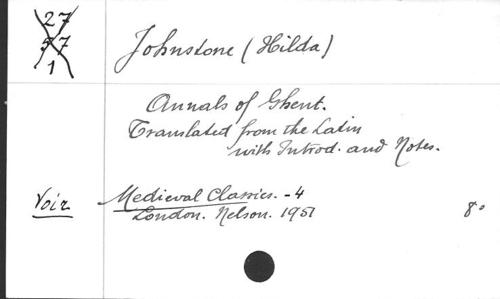 27
57
1
Johnstone (Hilda)
Annals of Ghent.
Translated from the Latin
with Introd. and Notes.
Voir
Medieval Classics. - 4
London. Nelson. 1951
8°